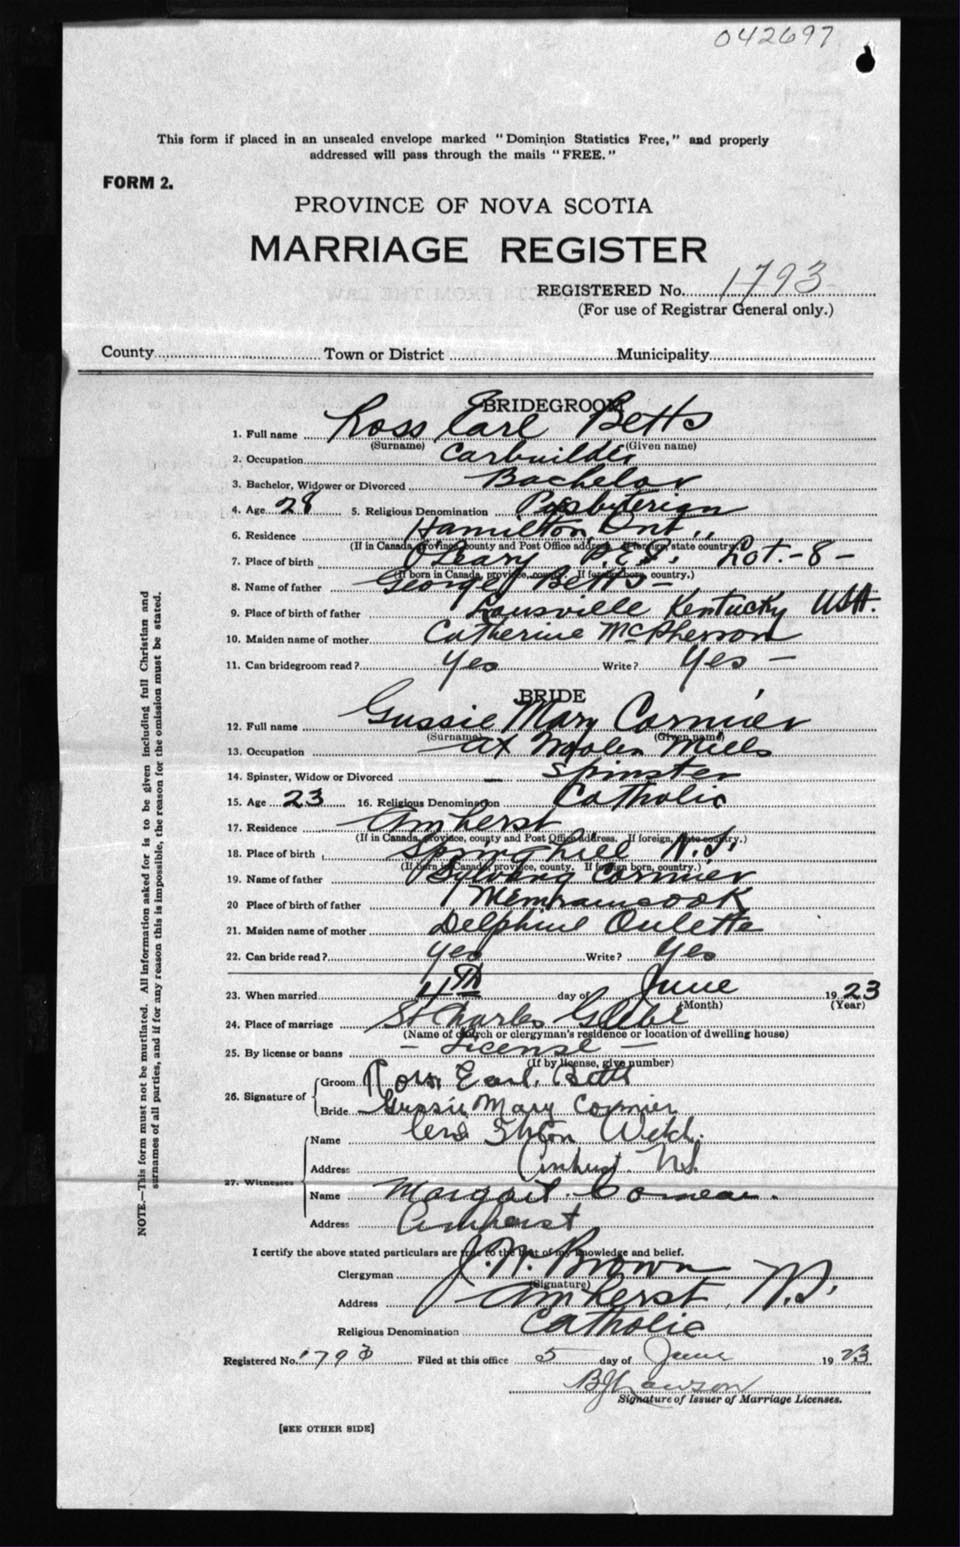 042697
This form if placed in an unsealed envelope marked "Dominion Statistics Free," and properly
addressed will pass through the mails "FREE."
FORM 2.
PROVINCE OF NOVA SCOTIA
MARRIAGE REGISTER
REGISTERED No. 1793
(For use of Registrar General only.)
County Town or District Municipality
BRIDEGROOM
1. Full name Ross Earl Betts
(Surname) (Given name)
2. Occupation Carbuilder
3. Bachelor, Widower or Divorced Bachelor
4. Age 28 5. Religious Denomination Presbyterian
6. Residence Hamilton, Ont.,
(If in Canada, province, county and Post Office address. If foreign, state country.)
7. Place of birth O'Leary P.E.I. Lot.-8-
(If born in Canada, province, county. If foreign born, country.)
8. Name of father George Betts -
9. Place of birth of father Lousville Kentucky USA.
10. Maiden name of mother Catherine McPherson
11. Can bridegroom read? Yes Write? Yes -
BRIDE
12. Full name Gussie Mary Cormier
(Surname) (Given name)
13. Occupation at Woolen Mills
14. Spinster, Widow or Divorced - Spinster
15. Age 23 16. Religious Denomination Catholic
17. Residence Amherst
(If in Canada, province, county and Post Office address. If foreign, state country.)
18. Place of birth Springhill N.S.
(If born in Canada, province, county. If foreign born, country.)
19. Name of father Sylvang Cormier
20 Place of birth of father Memramcook
21. Maiden name of mother Delphine Oulette
22. Can bride read? Yes Write? Yes
23. When married 4TH day of June 1923
(Month) (Year)
24. Place of marriage St Charles Glebe
(Name of church or clergyman's residence or location of dwelling house)
25. By license or banns - License -
(If by license, give number)
26. Signature of Groom Ross Earl Betts
Bride Gussie Mary Cormier
27. Witnesses
Name Welch.
Address Amherst N.S.
Name Margaret Comeau.
Address Amherst
I certify the above stated particulars are true to the best of my knowledge and belief.
Clergyman J. W. Brown
(Signature)
Address Amherst, N.S.
Religious Denomination Catholic
Registered No. 1793 Filed at this office 5 day of June 1923
Lawson
Signature of Issuer of Marriage Licenses.
[SEE OTHER SIDE]
NOTE.—This form must not be mutilated. All information asked for is to be given including full Christian and
surnames of all parties, and if for any reason this is impossible, the reason for the omission must be stated.